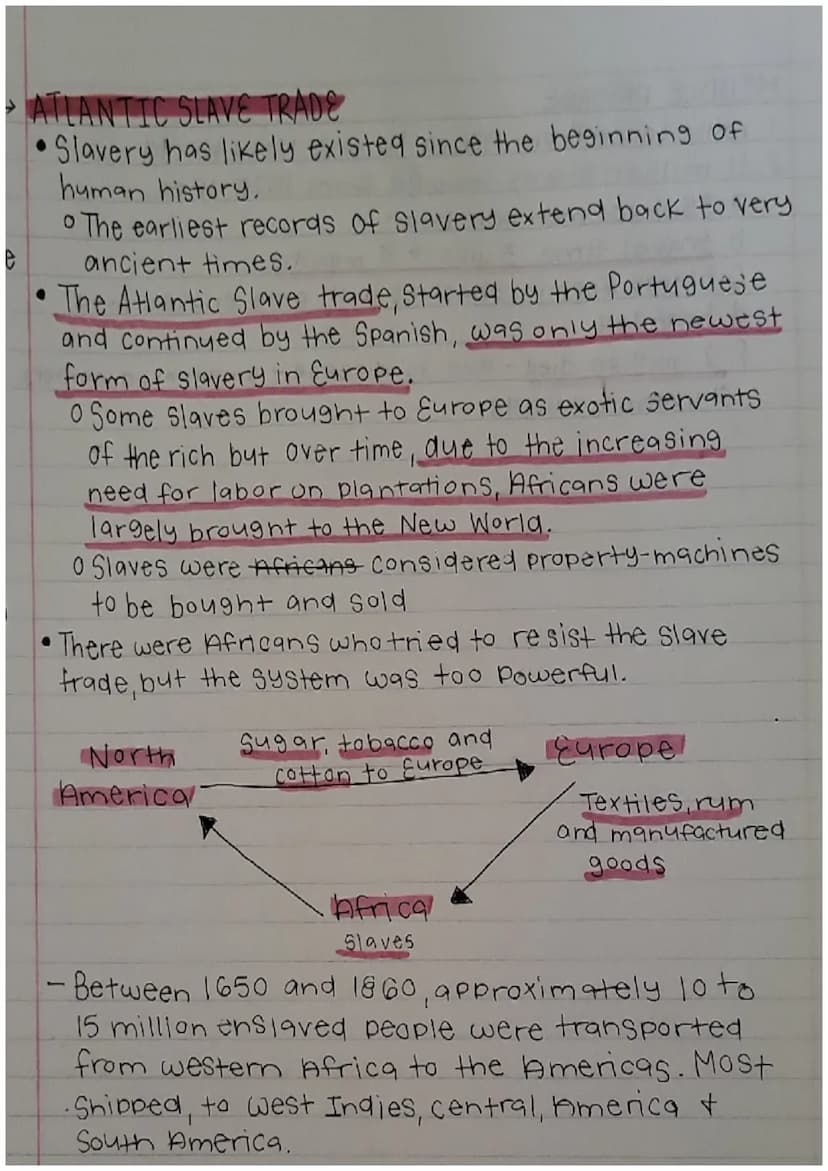 → ATLANTIC SLAVE TRADE
• Slavery has likely existed since the beginning of
human history.
o The earliest records of slavery extend back to very
e
ancient times.
• The Atlantic Slave trade, started by the Portuguese
and continued by the Spanish, was only the newest
form of slavery in Europe.
o Some slaves brought to Europe as exotic servants
of the rich but over time, due to the increasing
need for labor on plantations, Africans were
largely brought to the New World.
o Slaves were Africans considered property-machines
to be bought and sold
• There were Africans who tried to resist the slave
trade, but the system was too powerful.
North
America
Sugar, tobacco and
cotton to Europe
Europe
Textiles, rum
and manufactured
goods
Africa
slaves
- Between 1650 and 1860, approximately 10 to
15 million enslaved people were transported
from western Africa to the Americas. Most
shipped, to West Indies, central, America &
South America.